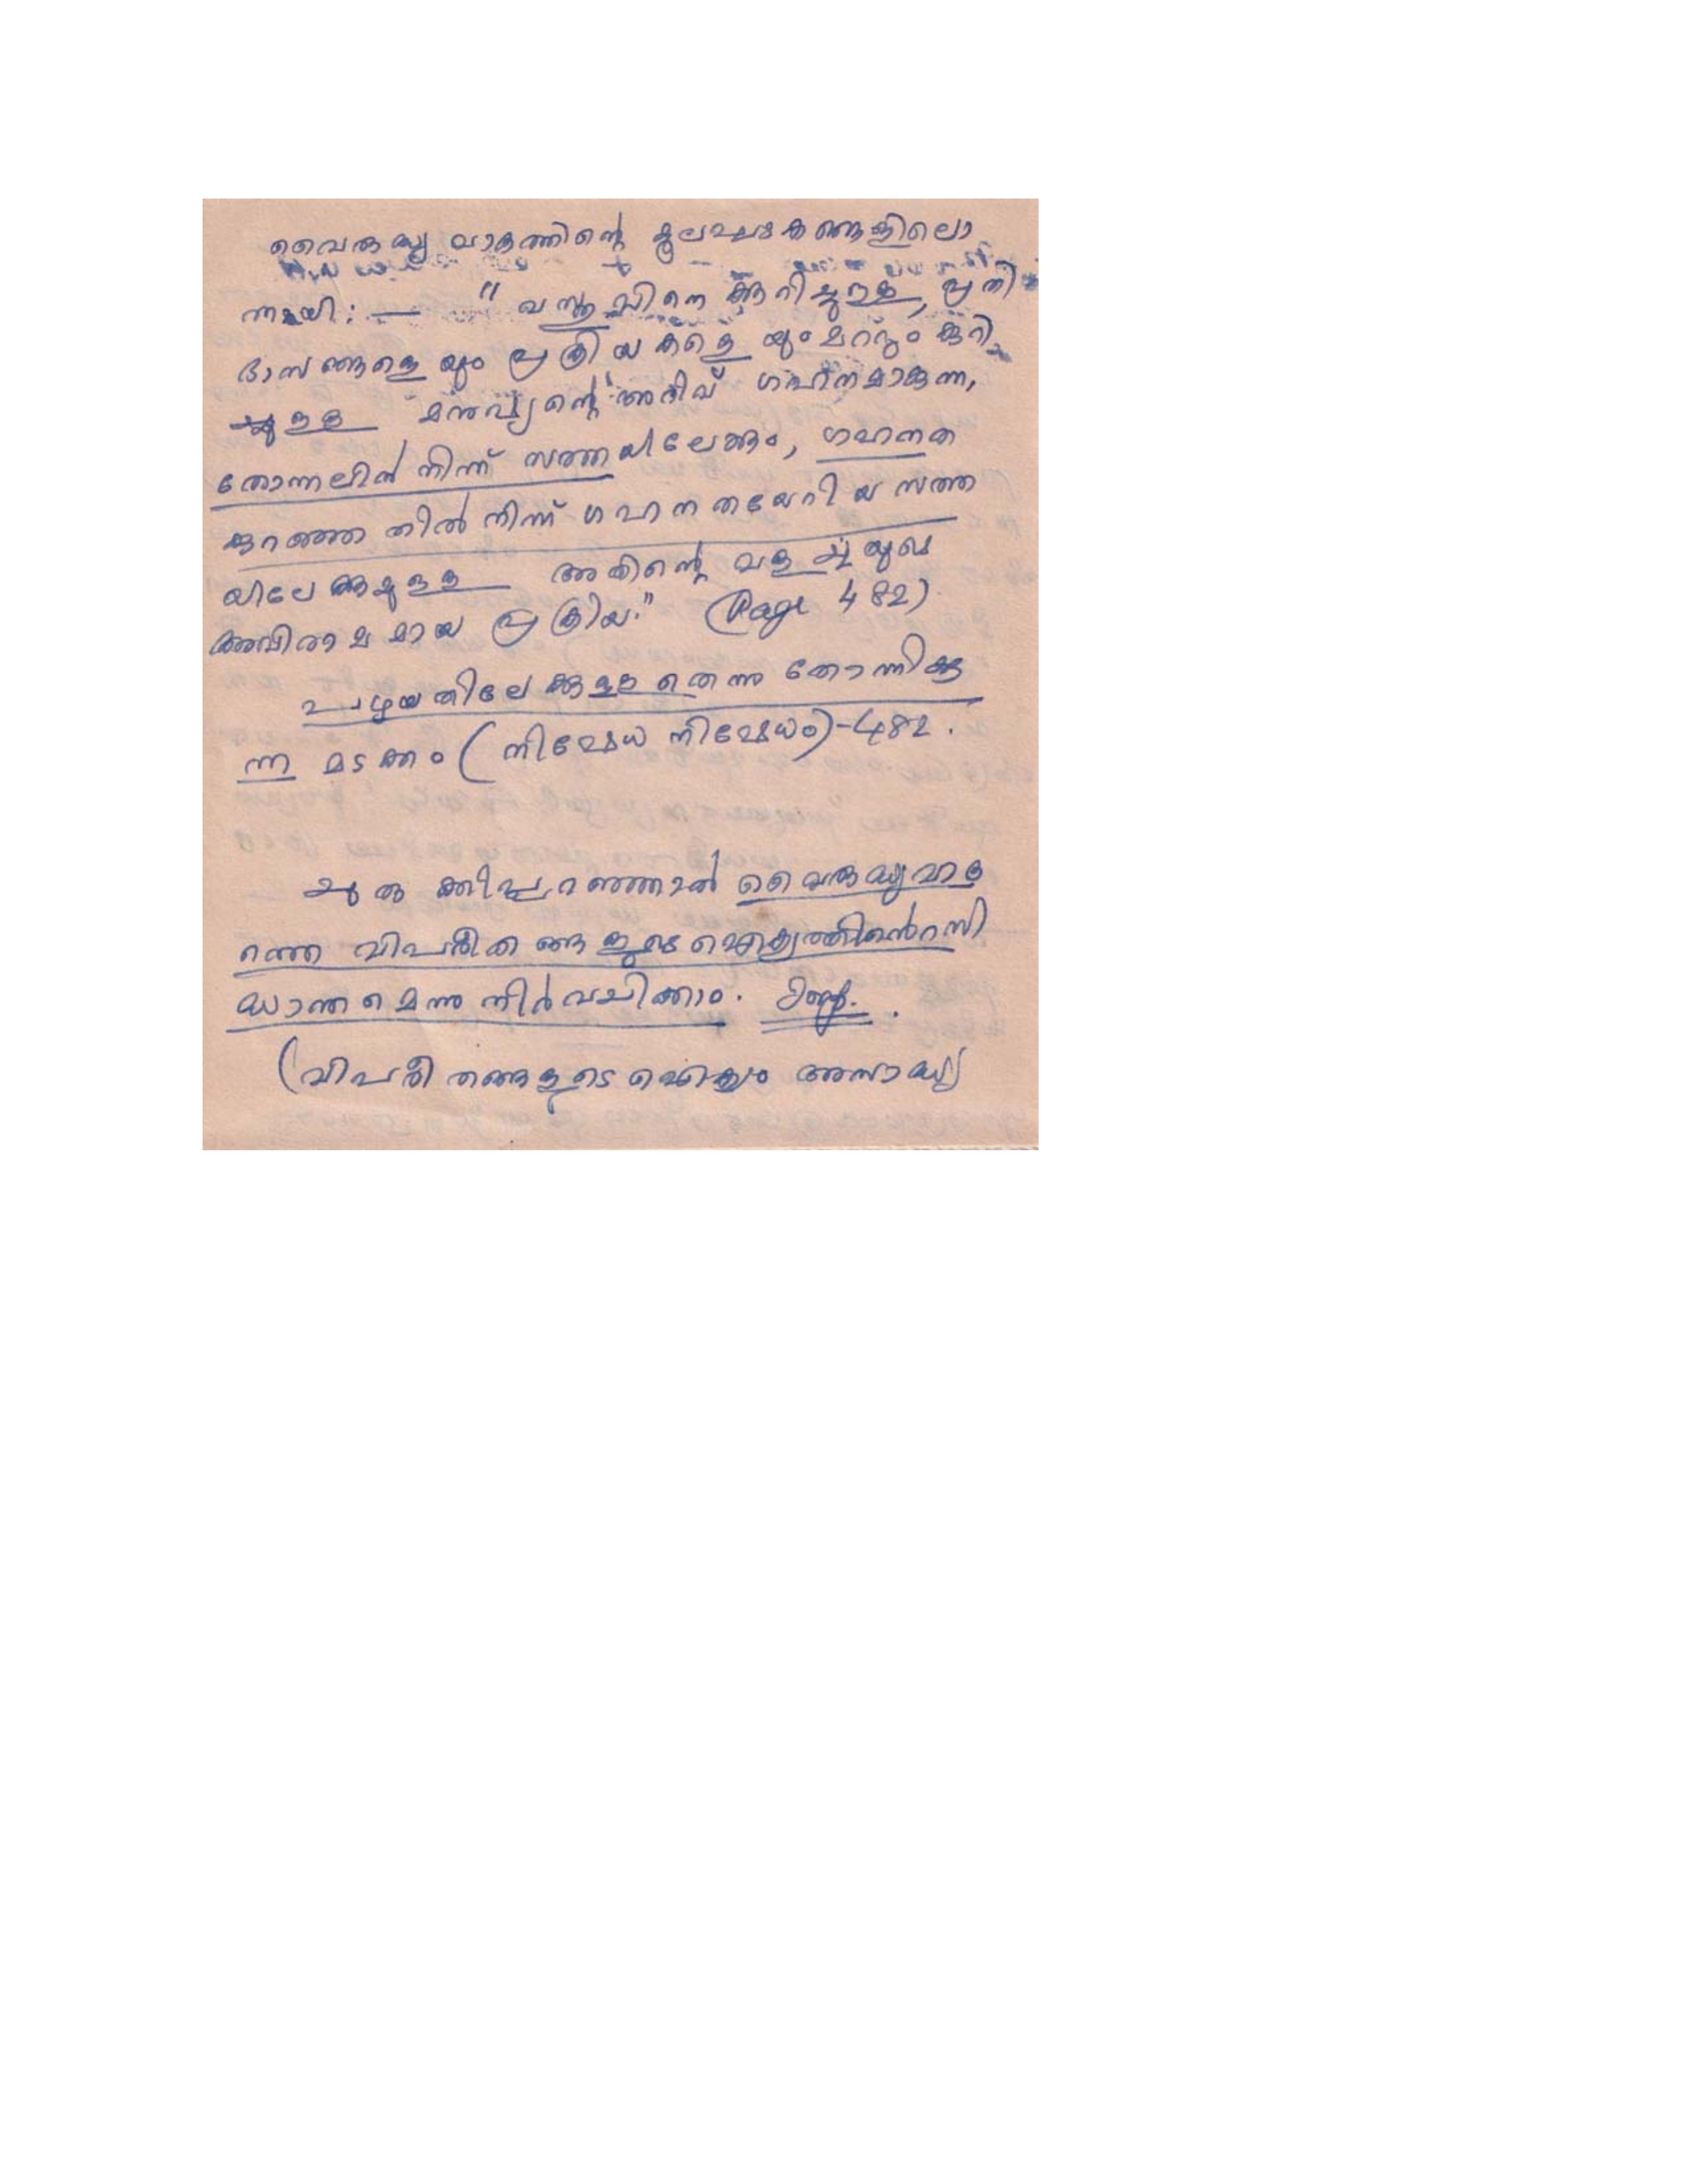 വൈരുദ്ധ്യ വാദത്തിന്റെ മൂലഘടകങ്ങളിലൊ
ന്നായി: — "വസ്തുവിനെ കുറിച്ചുള്ള, പ്രതി
ഭാസങ്ങളെയും പ്രക്രിയകളെയും മറ്റും കുറി
ച്ചുള്ള മനുഷ്യന്റെ അറിവ് ഗഹനമാകുന്ന,
തോന്നലിൽ നിന്ന് സത്തയിലേക്കും, ഗഹനത
കുറഞ്ഞതിൽ നിന്ന് ഗഹനതയേറിയ സത്ത
യിലേക്കുമുള്ള അതിന്റെ വളർച്ചയുടെ
അവിരാമമായ പ്രക്രിയ." (Page 482)
പഴയതിലേക്കുള്ളതെന്നു തോന്നിക്കു
ന്ന മടക്കം (നിഷേധ നിഷേധം)-482.
ചുരുക്കിപ്പറഞ്ഞാൽ വൈരുദ്ധ്യവാദ
ത്തെ വിപരീതങ്ങളുടെ ഐക്യത്തിൻെറ സി
ദ്ധാന്തമെന്നു നിർവചിക്കാം.
(വിപരീതങ്ങളുടെ ഐക്യം അസാദ്ധ്യ